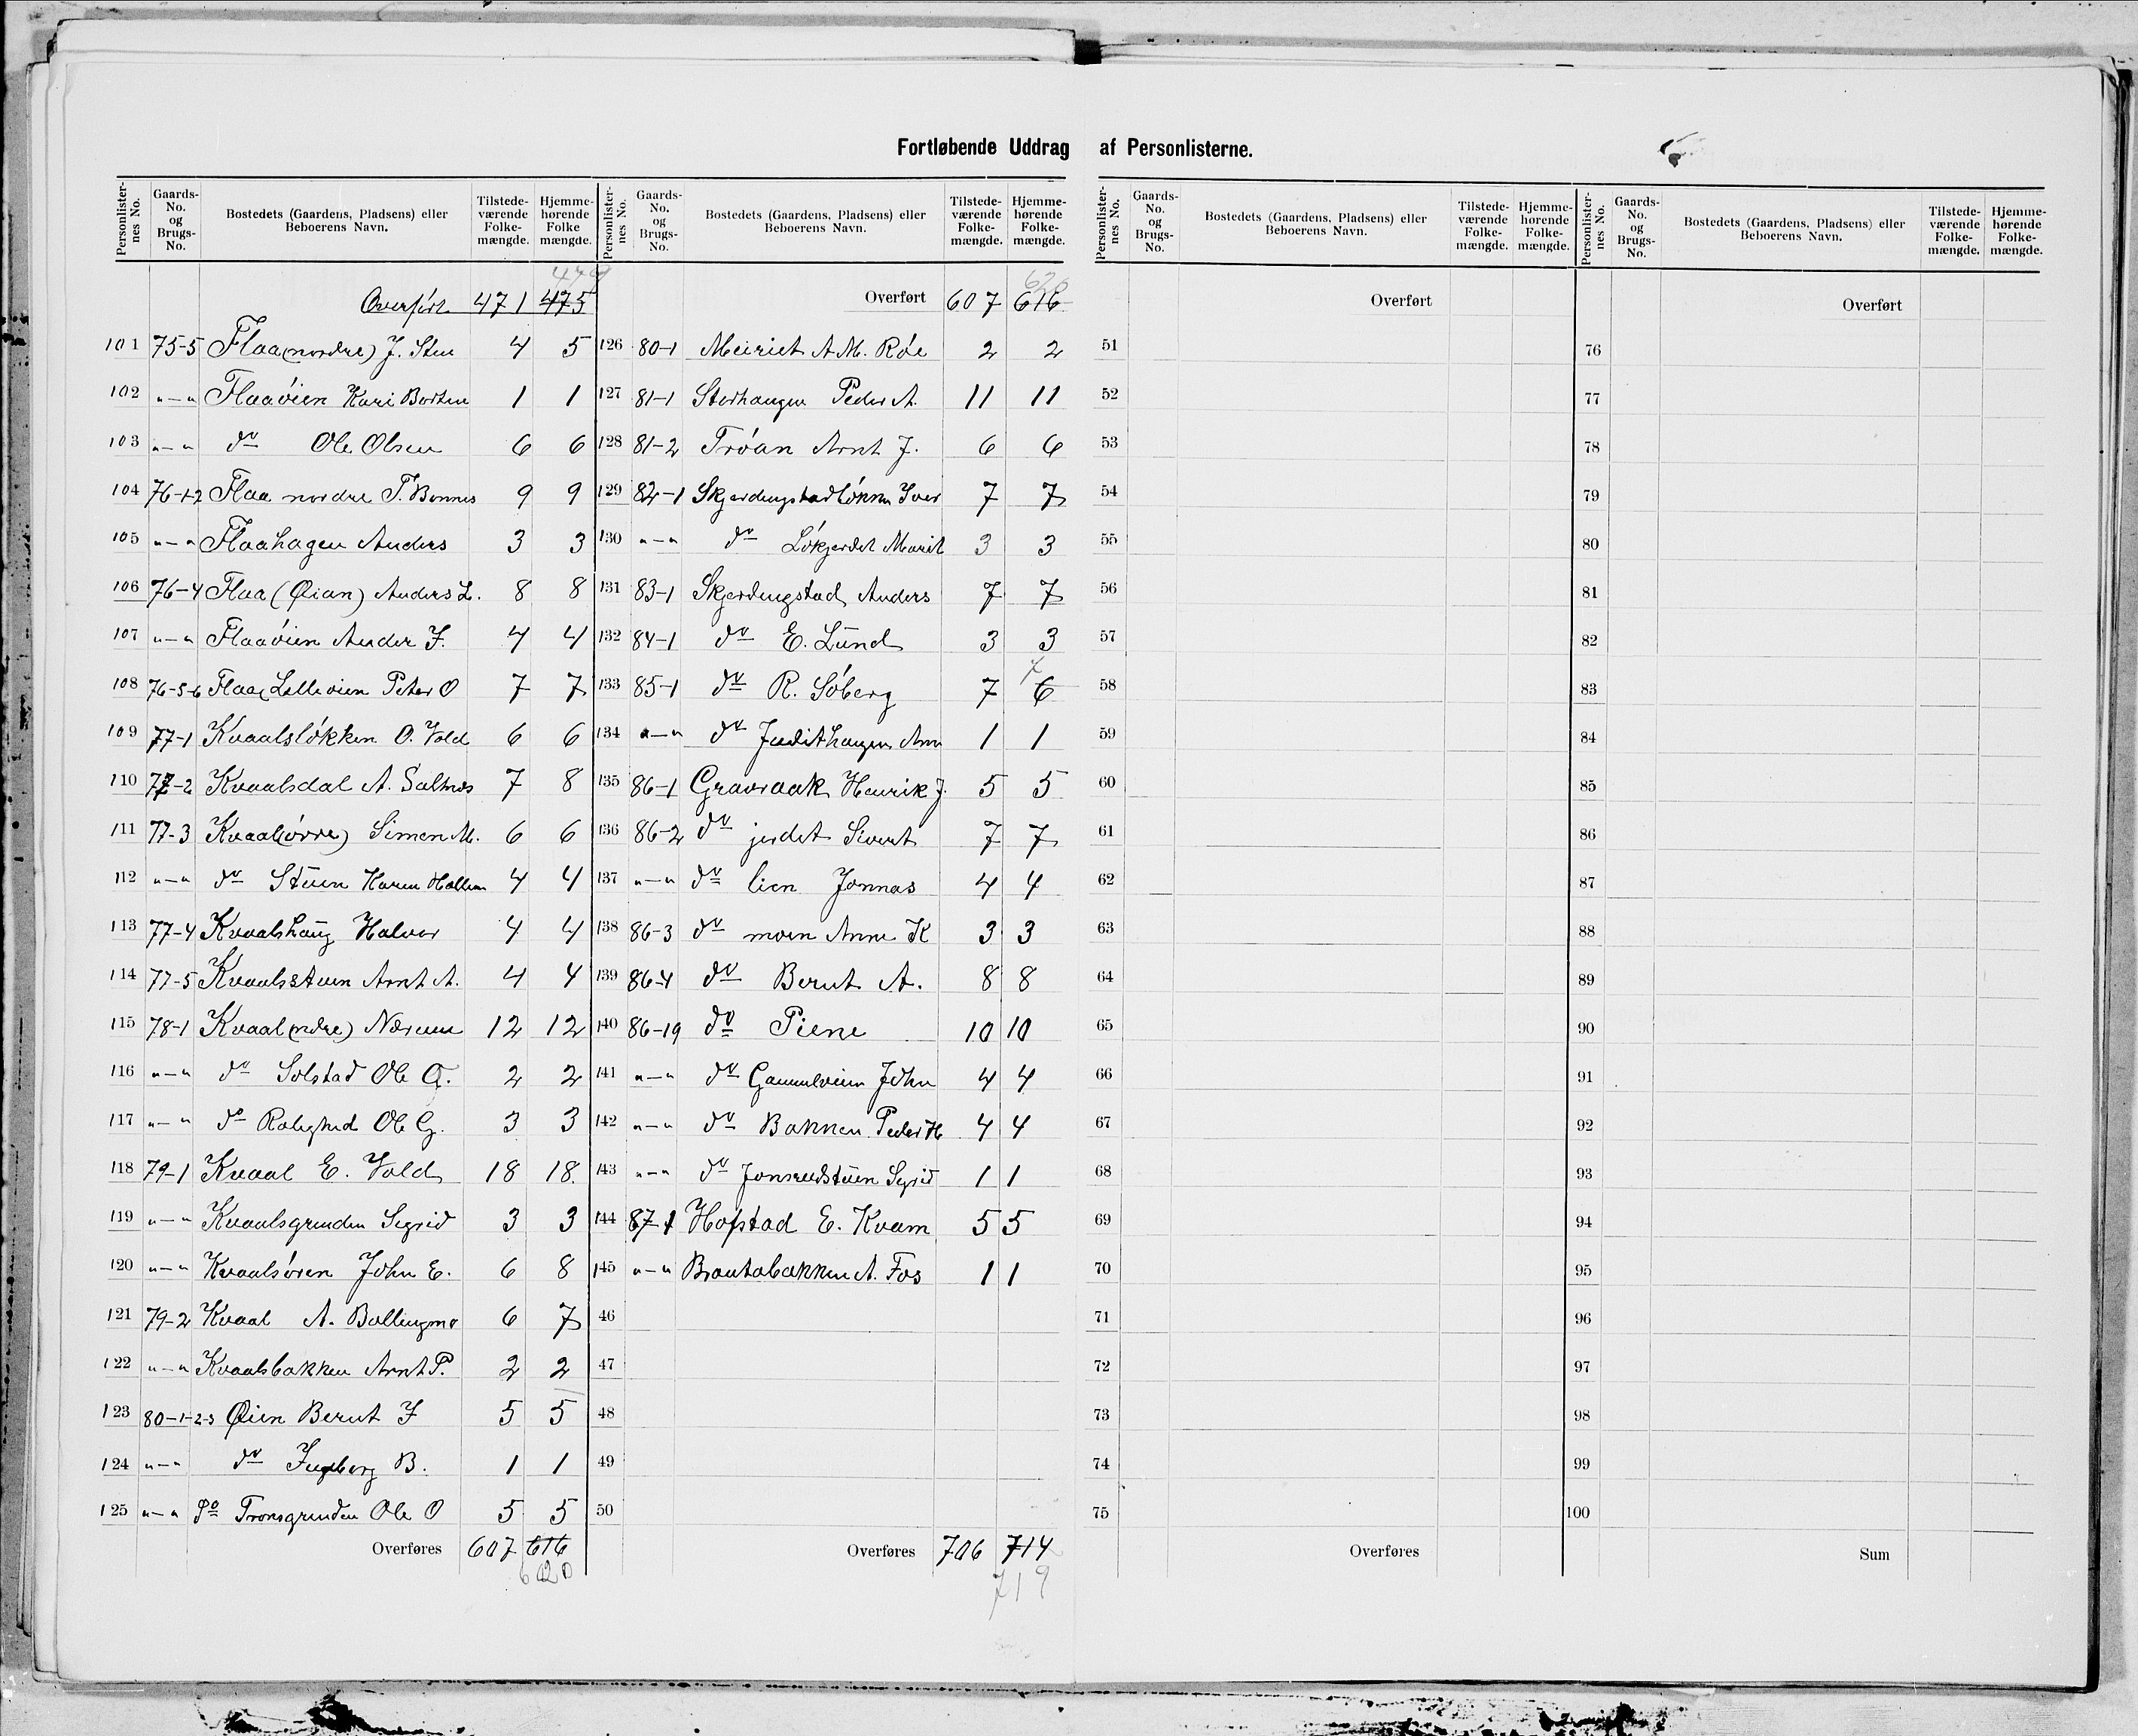 Fortløbende Uddrag af Personlisterne.
Personlisternes No. | Gaards-No. og Brugs-No. | Bostedets (Gaardens, Pladsens) eller Beboerens Navn. | Tilstedeværende Folkemængde. | Hjemmehørende Folkemængde.
Overført 471 475 479
101 75-5 Flaa (nordre) J. Stue 4 5
102 "—" Flaaøien Kari Borten 1 1
103 "—" do Ole Olsen 6 6
104 76-1-2 Flaa nordre P. Bonnes 9 9
105 "—" Flaahagen Anders 3 3
106 76-4 Flaa (Øian) Anders L. 8 8
107 "—" Flaaøien Ander J. 4 4
108 76-5-6 Flaa Lilleøien Peter O 7 7
109 77-1 Kvaalsløkken O. Vold 6 6
110 77-2 Kvaalsdal A. Saltnes 7 8
111 77-3 Kvaal (øvre) Simen M. 6 6
112 "—" do Stuen Karen 4 4
113 77-4 Kvaalshaug Halvor 4 4
114 77-5 Kvaalsstuen Arnt A. 4 4
115 78-1 Kvaal (ndre) Nærum 12 12
116 "—" do Solstad Ole O. 2 2
117 "—" do Rolighed Ole G. 3 3
118 79-1 Kvaal E. Vold 18 18.
119 "—" Kvaalsgrinden Sigrid 3 3
120 "—" Kvaalsøren John E. 6 8
121 79-2 Kvaal A. Ballingmo 6 7
122 "—" Kvaalsbakken Arnt P. 2 2
123 80-1-2-3 Øien Bernt J 5 5
124 "—" do Ingeborg B. 1 1
125 "—" do Tronsgrinden Ole O 5 5
Overføres 607 616
620
Overført 607 616 620
126 80-1 Meieriet A M. Røe 2 2
127 81-1 Storhaugen Peder A. 11 11
128 81-2 Trøan Arnt J. 6 6
129 82-1 Skjerdingstadløkken Iver 7 7
130 "—" do Løkjerdet Marit 3 3
131 83-1 Skjerdingstad Anders 7 7
132 84-1 do E. Lund 3 3
133 85-1 do R. Søberg 7 6 7
134 "—" do Judithaugen Ann 1 1
135 86-1 Gravraak Henrik J. 5 5
136 86-2 do jerdet Sivert 7 7
137 "—" do lien Jonnas 4 4
138 86-3 do moen Anne K 3 3
139 86-4 do Bernt A. 8 8
140 86-19 do Piene 10 10
141 "—" do Gammeløien John 4 4
142 "—" do Bakken Peder H 4 4
143 "—" do Sigrid 1 1
144 87-1 Hofstad E. Kvam 5 5
145 "—" Brautabakken A. Fos 1 1
46
47
48
49
50
Overføres 706 714
719
Personlisternes No. | Gaards-No. og Brugs-No. | Bostedets (Gaardens, Pladsens) eller Beboerens Navn. | Tilstedeværende Folkemængde. | Hjemmehørende Folkemængde.
Overført
51
52
53
54
55
56
57
58
59
60
61
62
63
64
65
66
67
68
69
70
71
72
73
74
75
Overføres
Overført
76
77
78
79
80
81
82
83
84
85
86
87
88
89
90
91
92
93
94
95
96
97
98
99
100
Sum